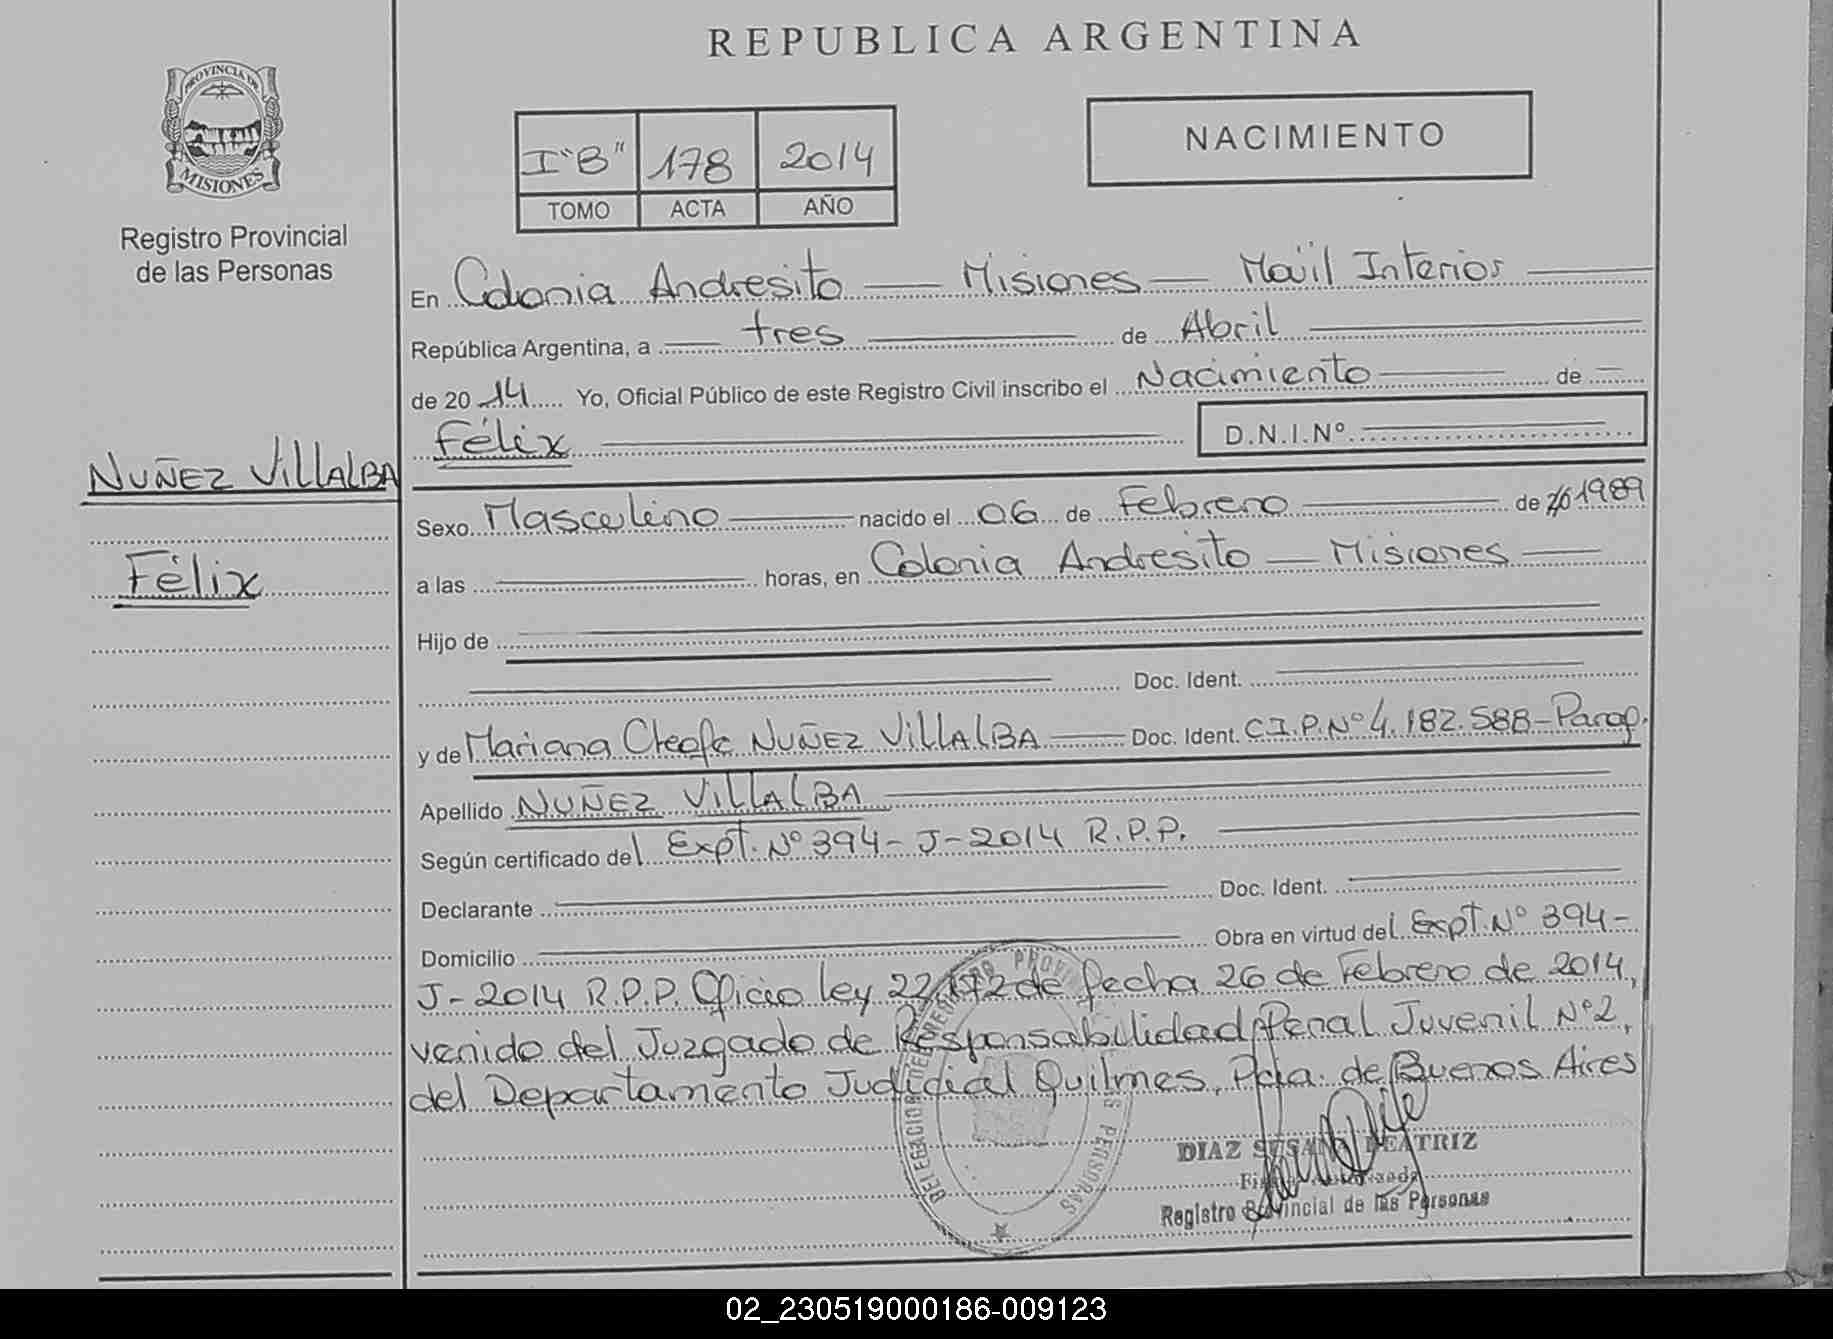 REPUBLICA ARGENTINA
PROVINCIA DE
MISIONES
Registro Provincial
de las Personas
I "B" 178 2014
TOMO ACTA AÑO
NACIMIENTO
En Colonia Andresito — Misiones — Movil Interior
República Argentina, a tres de Abril
de 2014 Yo, Oficial Público de este Registro Civil inscribo el Nacimiento de
Félix D.N.I.Nº
NUÑEZ VillALBA
Félix
Sexo Masculino nacido el 06 de Febrero de 1989
a las horas, en Colonia Andresito — Misiones
Hijo de
Doc. Ident.
y de Mariana NUÑEZ VillALBA Doc. Ident. C.I.P.Nº 4.182.588-Parag.
Apellido NUÑEZ VillALBA
Según certificado del Expt. Nº 394-J-2014 R.P.P.
Declarante Doc. Ident.
Domicilio Obra en virtud del Expt. Nº 394-
J-2014 R.P.P. Oficio ley 22172 de fecha 26 de Febrero de 2014,
venido del Juzgado de Responsabilidad Penal Juvenil Nº2,
del Departamento Judicial Quilmes, Pcia. de Buenos Aires
DELEGACION DEL REGISTRO PROVINCIAL PERSONAS
DIAZ SUSANA BEATRIZ
Registro Provincial de las Personas
02_230519000186-009123